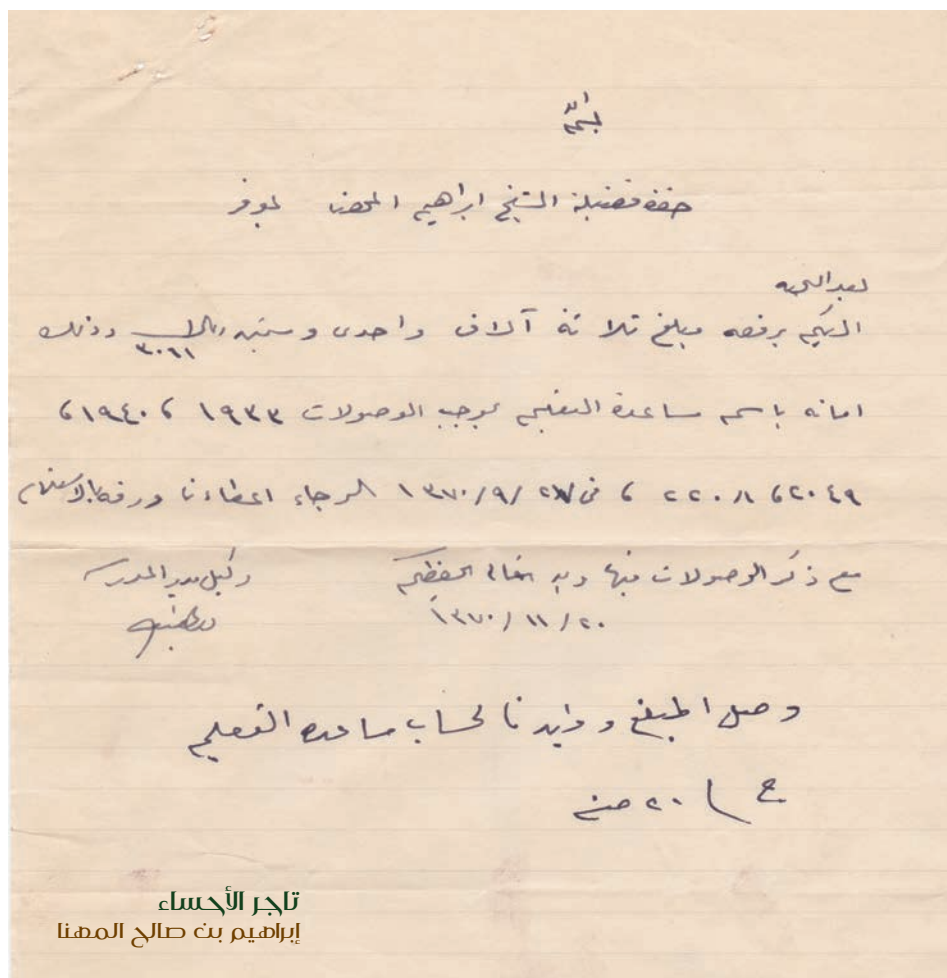 بسم الله
حضرة فضيلة الشيخ ابراهيم المهنا الموقر
بعد التحية
اليكم برفقه مبلغ ثلاثة آلاف واحدى وستين ريال وذلك
٣٠٦١
امانه باسم مساعدة التعليم بموجب الوصولات ١٩٣٣ ، ١٩٤٠ ،
٢٠٤٩ ، ٢٢٠٨ ، في ٢٧/٩/١٣٧٠ الرجاء اعطاءنا ورقة بالاستلام
مع ذكر الوصولات فيها والله تعالى يحفظكم
وكيل مدير المدرسة
٢٠/١١/١٣٧٠
وصل المبلغ وقيدنا لحساب مساعدة التعليم
٢٠ منه
تاجر الأحساء
إبراهيم بن صالح المهنا